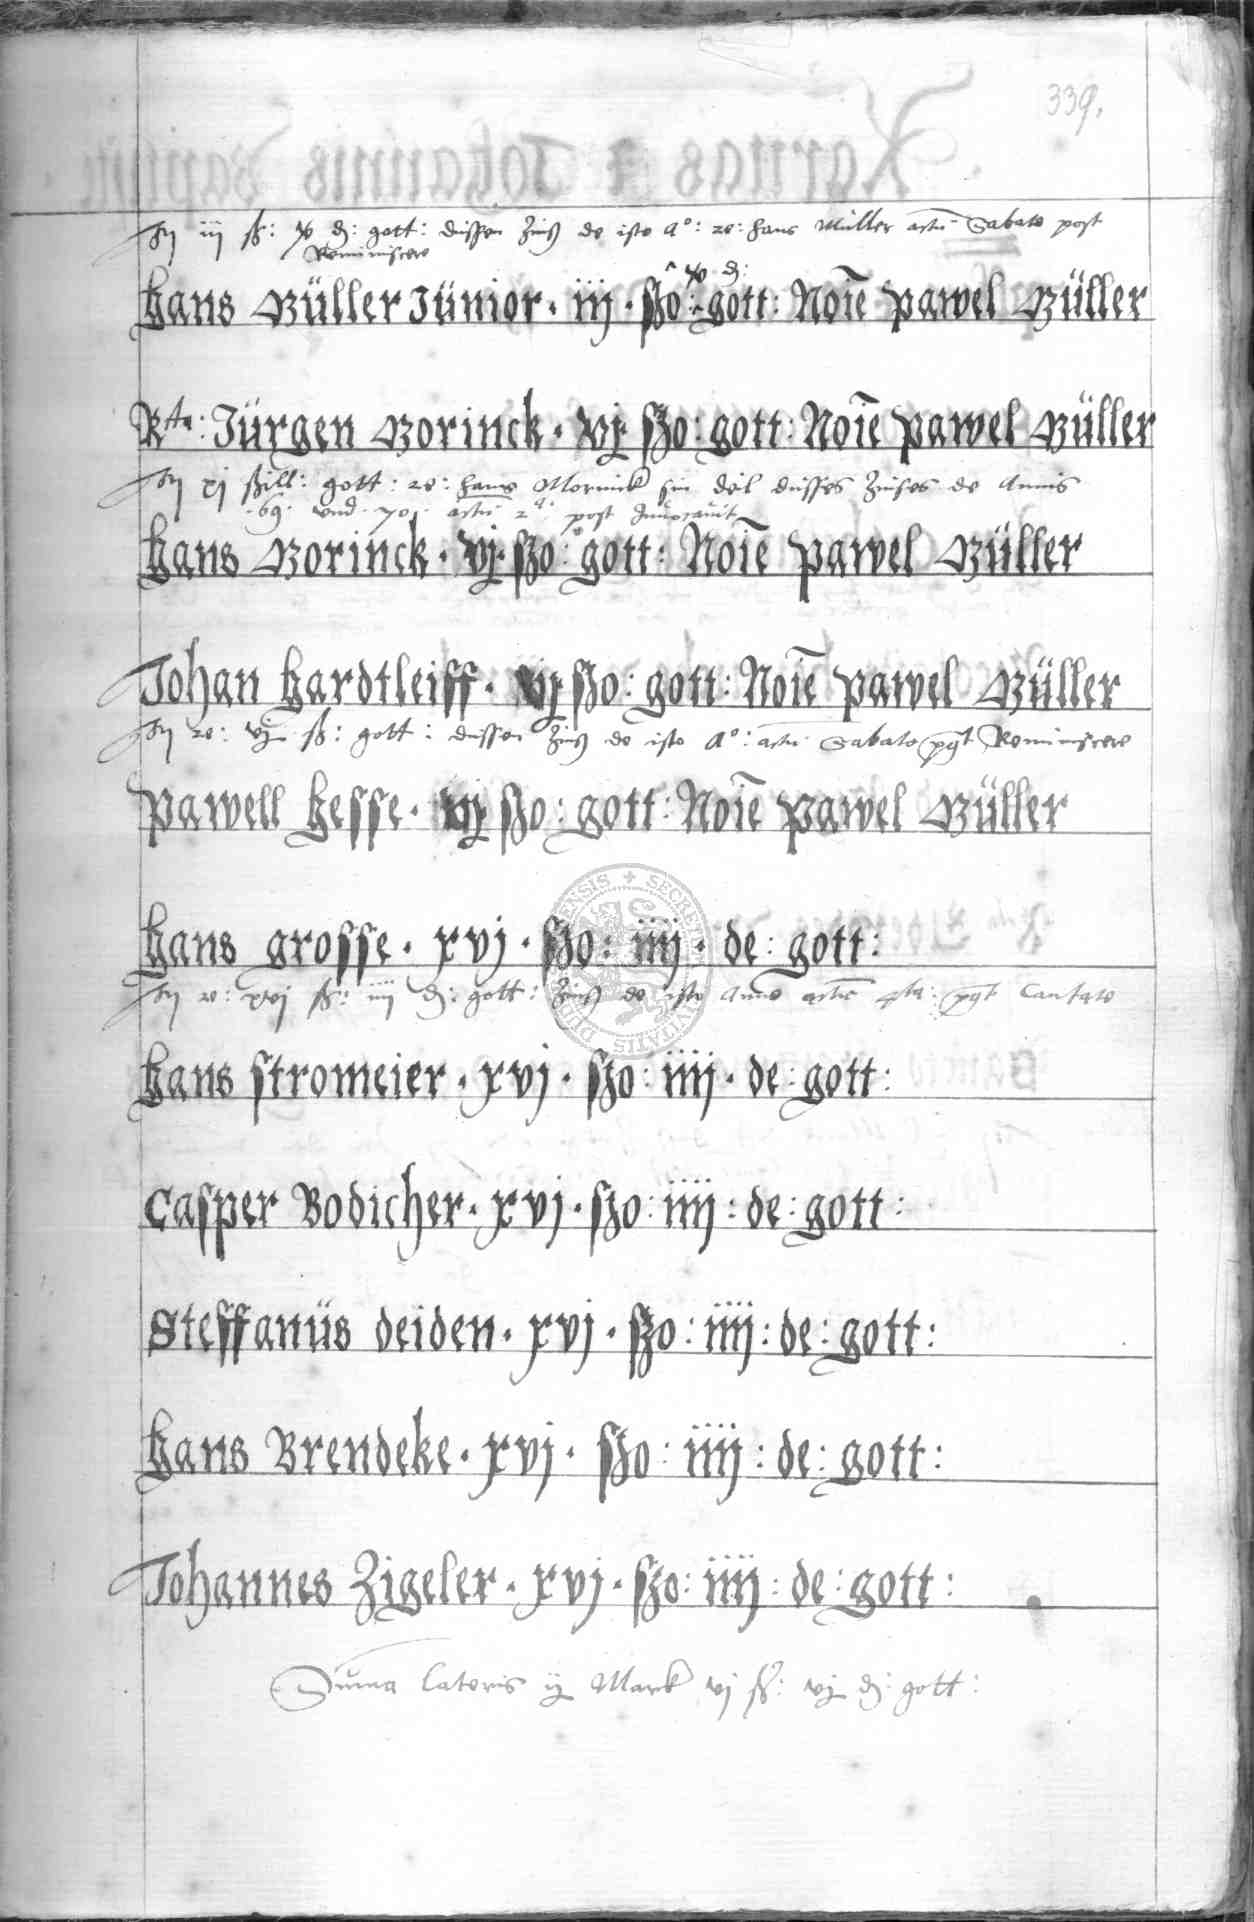 339.
iij ß: x ₰: gott: dussen Zinß de isto Aº: re: hans Müller actũ Sabato post
Reminiscere
Hans Müller Jünior · iij · szo: x ₰: gott: Noīe Pawel Müller
Rta: Jürgen Morinck · vj szo: gott: Noīe Pawel Müller
xj ßill: gott: re: hans Morinck sin deil dusses Zinses de Annis
·69· vnd ·70· actũ post Inuocauit
Hans Morinck · vj · szo: gott: Noīe Pawel Müller
Johan Hardtleiff · szo: gott: Noīe Pawel Müller
re: vj ß: gott: dussen Zinß de isto Aº: actũ Sabato pqt Reminiscere
Pawell Hesse · szo: gott: Noīe Pawel Müller
Hans grosse · xvj · szo: iiij · de: gott:
re: xvj ß: iiij ₰: gott: Zinß de isto Anno actũ 4ta: pqt Cantate
Hans stromeier · xvj · szo: iiij · de: gott:
Casper Bodicher · xvj · szo: iiij: de: gott:
Steffanüs deiden · xvj · szo: iiij: de: gott:
Hans Brendeke · xvj · szo: iiij: de: gott:
Johannes Zigeler · xvj · szo: iiij: de: gott:
Suma lateris ij Mark vj ß: vj ₰: gott: